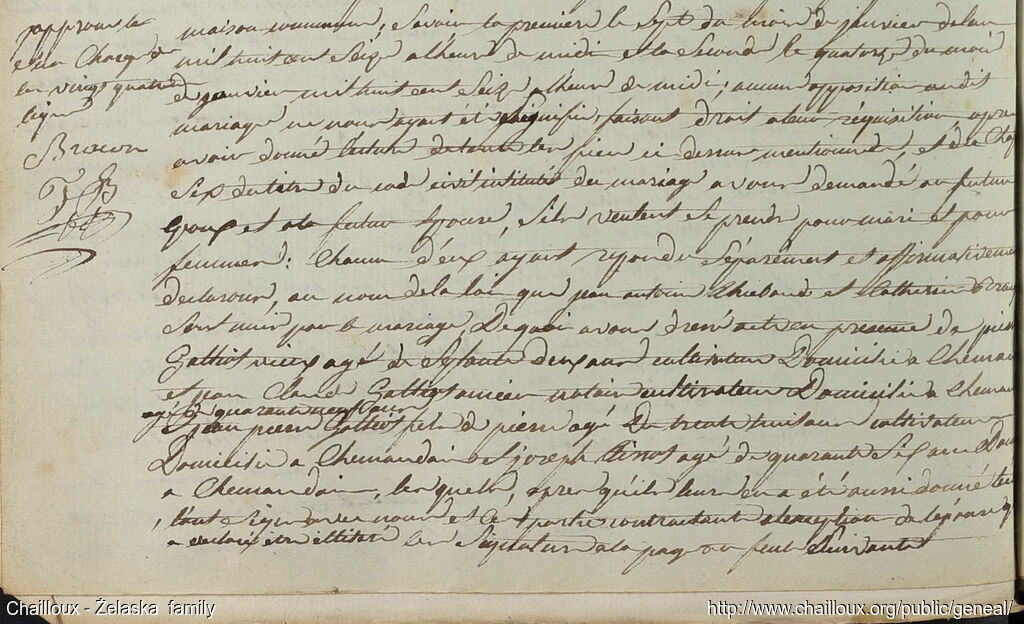 japprouve la
la vingt quatre
ligne
Bracon
maison commune ; Savoir la premiere le Sept du mois de janvier de lan
mil huit cent Seize a lheure de midi et la Seconde le quatorze du mois
de janvier mil huit cent Seize a lheure de midi ; aucune opposition audit
mariage ne nous ayant été Signifié, faisant droit a leur réquisition apres
avoir donné lecture de toutes les pieces ci dessus mentionnées, et de la Chap
Six du titre du code civil intitulé du mariage avons demandé au futur
Epoux et a la future Epouse, Sils veulent Se prendre pour mari et pour
femme : chacun d'eux ayant repondu Séparément et affirmativement
declarons, au nom de la loi que jean antoine Thiebaud et Catherine
Sont unis par le mariage, De quoi avons dressé acte en presence de pierre
Galliot vieux agé de Soixante deux ans cultivateur Domicilié a Chemau
et jean Claude Galliot ancien notaire cultivateur Domicilié a Chemau
agé de quarante neuf ans
jean pierre Galliot fils de pierre agé De trente huit ans cultivateur
Domicilié a Chemaudain et joseph agé de quarante Six ans Dom
a Chemaudain, les quels, apres qu'ils leur en a été aussi donné lec
l'ont Signé avec nous et les parties contractantes a lexception de lépouse q
a declaré etre illitere les Signatures a la page au feuillet Suivante
Chailloux - Żelaska family
http://www.chailloux.org/public/geneal/